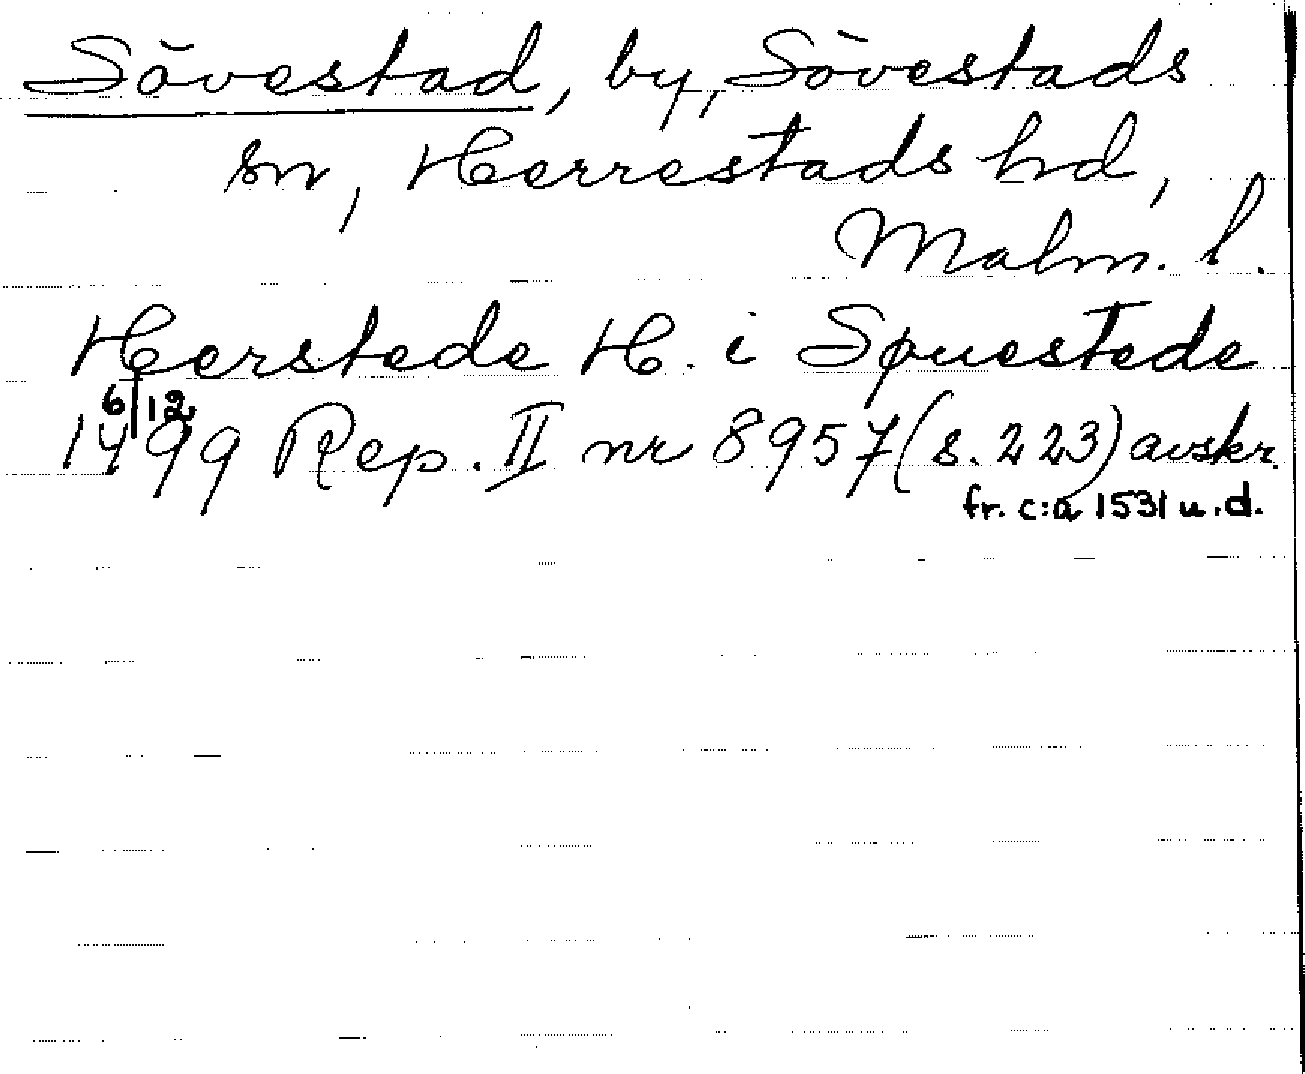 Sövestad, by, Sövestads
sn, Herrestads hd,
Malm. l.
Herstede H. i Søuestede
6/12
1499 Rep. II nr 8957 (s. 223) avskr.
fr. c:a 1531 u.d.